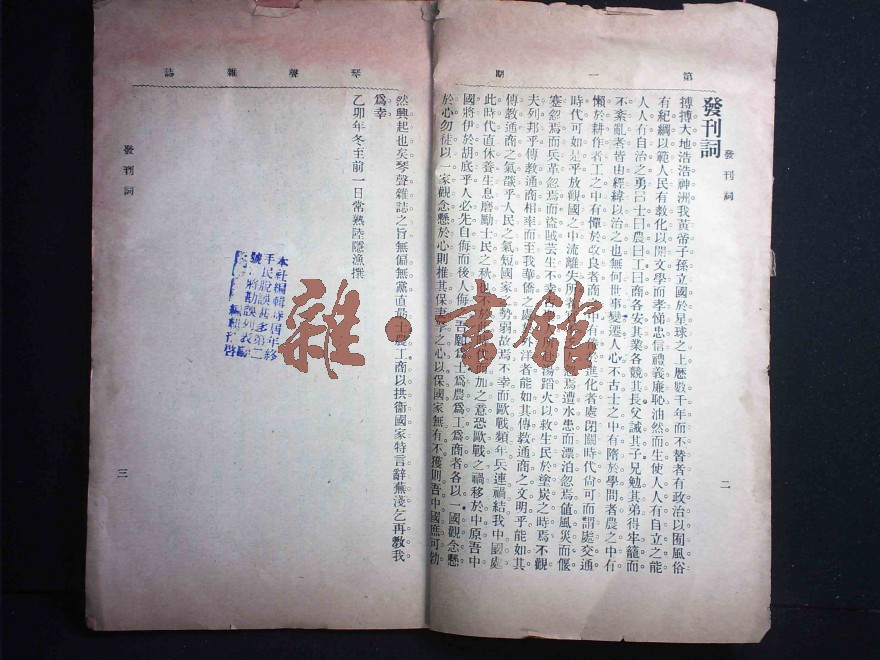 第一期
發刊詞
二
發刊詞
搏搏大地浩浩神洲我黃帝子孫立國於星球之上歷數千年而不替者有政治以囿風俗
有紀綱以範人民有教化以開文學而孝悌忠信禮義廉恥油然而生使人人有自立之能
人人有自治之勇曰士曰農曰工曰商各安其業各競其長父誡其子兄勉其弟得牢籠而
不紊亂者皆由經緯以治之也無何世事變遷人心不古士之中有隋於學問者農之中有
懶於耕作者工之中有憚於改良者商之中有 於進化者處閉關時代尙可而謂處交通
時代可如是乎放觀國之中流離失所者 焉遭水患而漂泊忽焉値風災而偃
蹇忽焉而兵革忽焉而盜賊芸生不幸 湯蹈火以救生民於塗炭之時焉不觀
夫列邦乎傳敎通商相率而至我華僑之處 外洋者能如其傳敎通商之文明乎能如其
傳敎通商之氣燄乎人民之氣短國家之勢弱故焉不幸而歐戰頻年兵連禍結我中國處
此時代直休養生息磨勵士民之秋 不於 而加之意恐歐戰之禍移於中原吾中
國將伊於胡底乎人必先自侮而後人侮 吾願爲士爲農爲工爲商者各以一國觀念懸
於心勿徒以一家觀念懸於心則推其保妻 之心以保國家無有不獲則吾中國庶可勃
琴聲雜誌
然興起也矣琴聲雜誌之旨無偏無黨直 士農工商以拱衞國家特言辭蕪淺乞再敎我
爲幸
乙卯年冬至前一日常熟陸隱漁撰
發刊詞
三
本社編輯 年終
手民脫誤甚多第二
號 將勘誤列表
編輯 啓
雜·書館